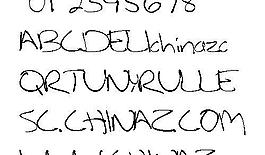 012345678
ABCDELLchinazc
QRTUNYRULLE
SC.CHINAZ.COM
CHINAZ